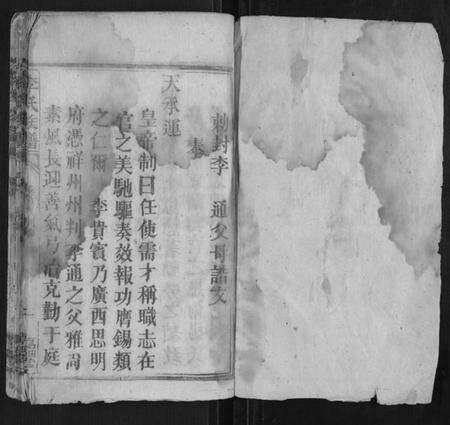 敕封李　通父母誥文
奉
天承運
皇帝制曰任使需才稱職志在
官之美馳驅奏效報功膺錫類
之仁爾　李貴賓乃廣西思明
府憑祥州州判李通之父雅尚
素風長迎善氣弓冶克勤于庭
李氏族譜